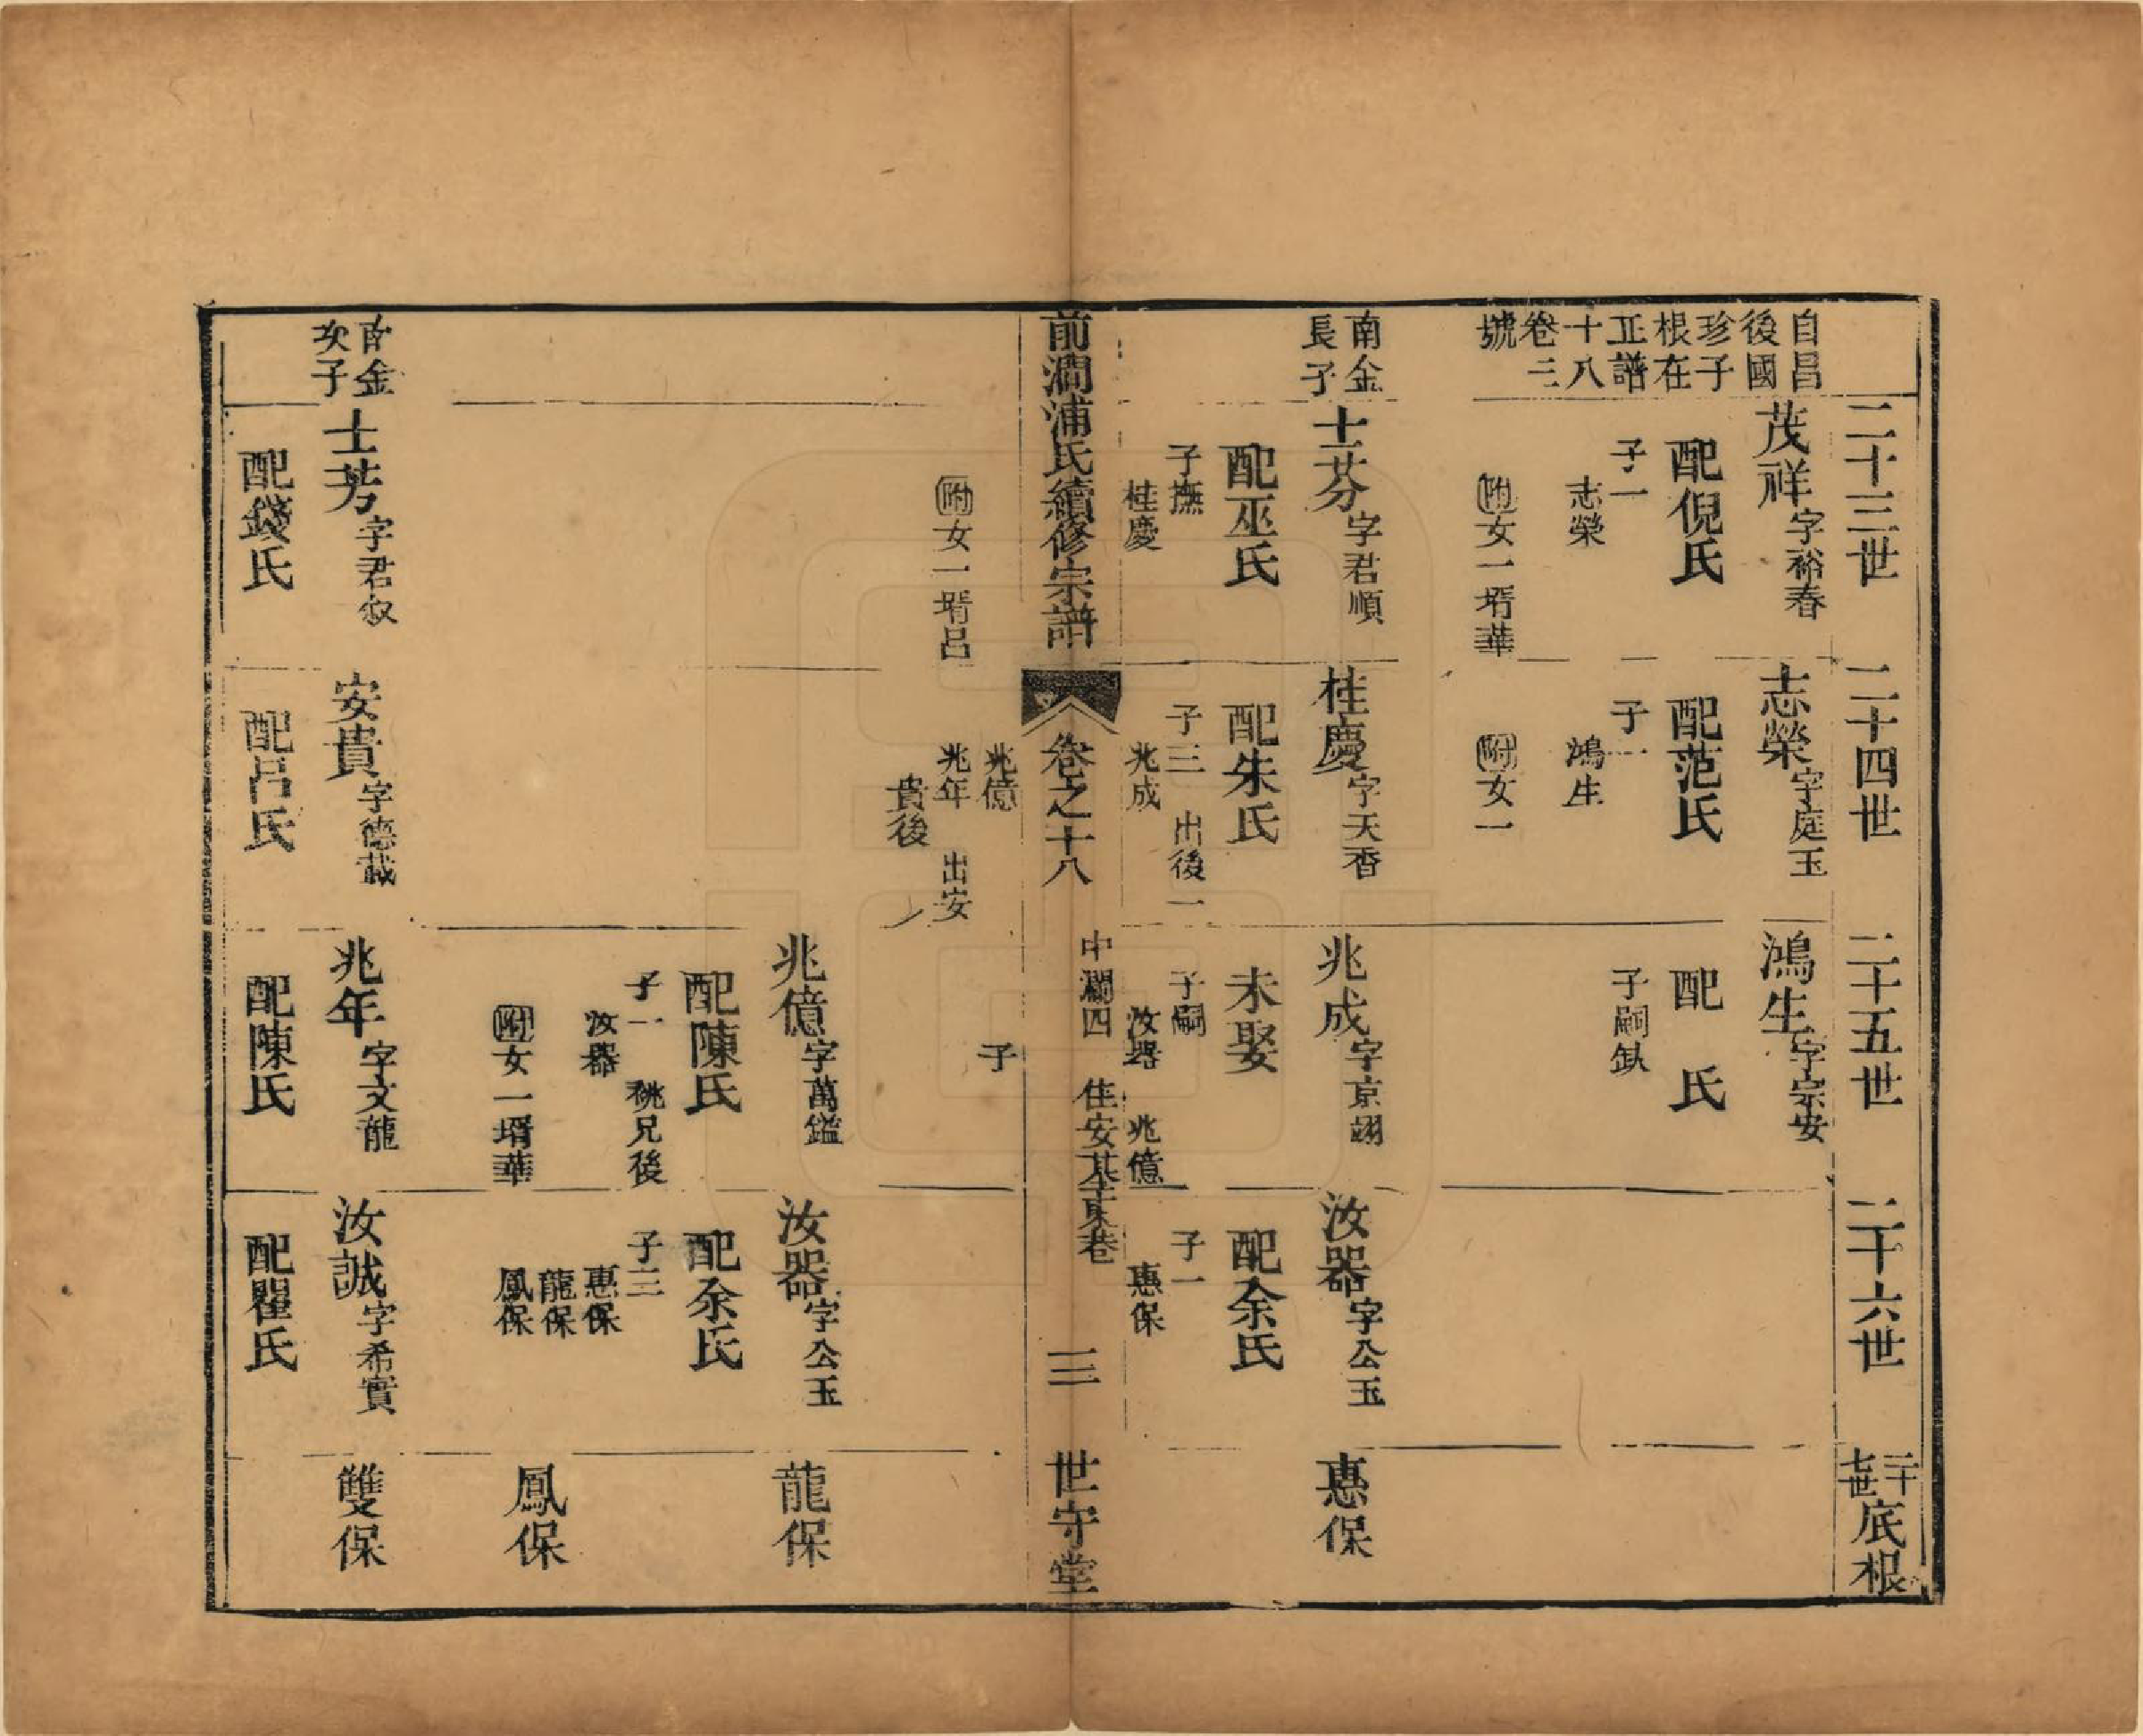 二十三世
二十四世
二十五世
二十六世
二十七世底根
自昌
後國
珍子
根在
正譜
十八
卷三
號
茂祥字裕春
配倪氏
子一
志榮
附女一壻華
志榮字庭玉
配范氏
子一
鴻生
附女一
鴻生字宗安
配　氏
子嗣缺
南金
長子
士芬字君順
配巫氏
子撫
桂慶
附女一壻呂
桂慶字天香
配朱氏
子三　出後一
兆成
兆億
兆年　出安
貴後
兆成字京翊
未娶
子嗣
汝器　兆億
子
汝器字公玉
配余氏
子一
惠保
惠保
前澗浦氏續修宗譜
卷之十八
中瀾四　住安基東巷
三
世守堂
兆億字萬鎰
配陳氏
子一　祧兄後
汝器
附女一壻華
汝器字公玉
配余氏
子三
惠保
龍保
鳳保
龍保
鳳保
南金
次子
士芳字君叙
配錢氏
安貴字德載
配呂氏
兆年字文龍
配陳氏
汝誠字希實
配瞿氏
雙保